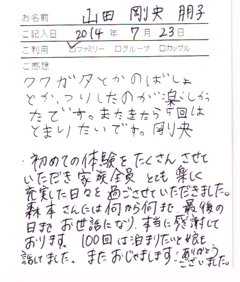 お名前 山田 剛央 朋子
ご記入日 2014年 7月 23日
ご利用 ☑ファミリー □グループ □カップル
ご感想
クワガタとかのばしょ
とか、つりしたのが楽しかっ
たです。またきたら今回は
とまりたいです。剛央
・初めての体験をたくさんさせて
いただき家族全員とても楽しく
充実した日々を過ごさせていただきました。
森本さんには何から何まで最後の
日までお世話になり、本当に感謝して
おります。100回は泊まりたいと娘も
話してました。またおじゃまします。ありがとう
ございました。